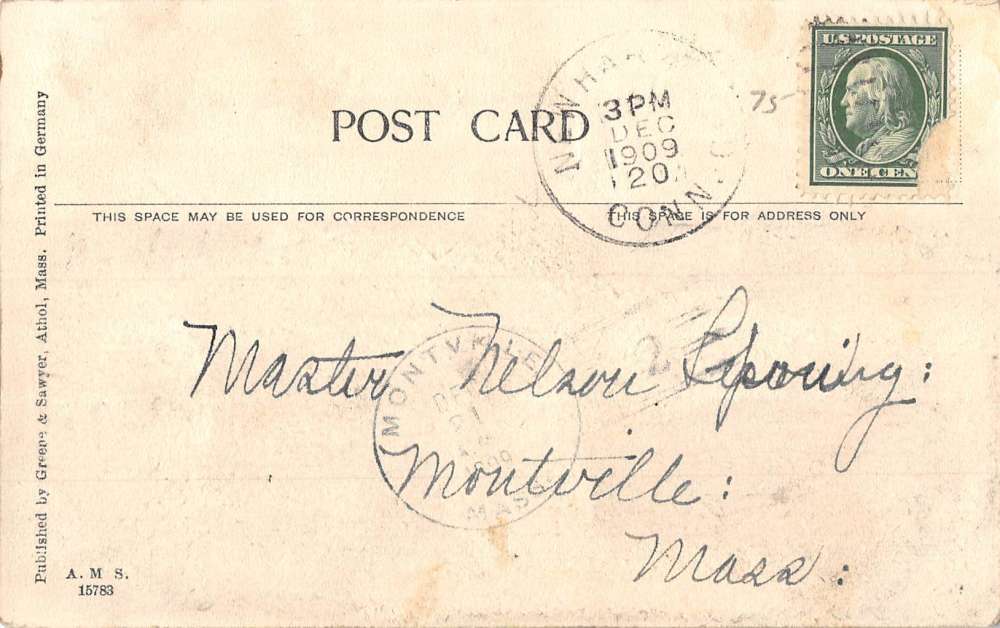 U.S. POSTAGE
ONE CEN
75-
POST CARD
3 PM
DEC
1909
20
CONN.
THIS SPACE MAY BE USED FOR CORRESPONDENCE
THIS SPACE IS FOR ADDRESS ONLY
Master Nelson
MONTVILLE
21
1909
MASS
2
Montville:
Mass:
Published by Greene & Sawyer, Athol, Mass. Printed in Germany
A. M S.
15783